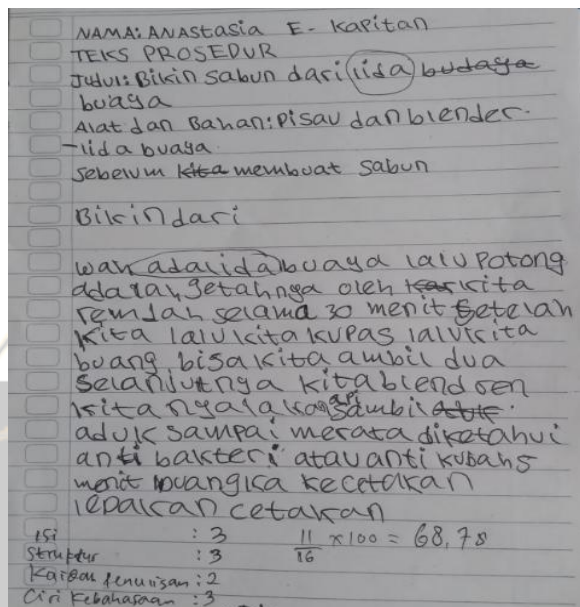 NAMA: ANAstasia E- Kapitan
TEKS PROSEDUR
Judul: Bikin sabun dari lida budaya
buaya
Alat dan Bahan: Pisau dan blender.
-lida buaya
sebelum kita membuat sabun
Bikin dari
wah ada lida buaya lalu Potong
adalah getahnya oleh kita
remdah selama 30 menit setelah
kita lalu kita kupas lalu kita
buang bisa kita ambil dua
selanjutnya kita blend sen
kita nyala kan api sambil
aduk sampai merata diketahui
anti bakteri atau anti kubahs
menit buangka kecetakan
lepaskan cetakan
isi : 3 11/16 x 100 = 68,78
Struktur : 3
Kaidah penulisan : 2
Ciri Kebahasaan : 3